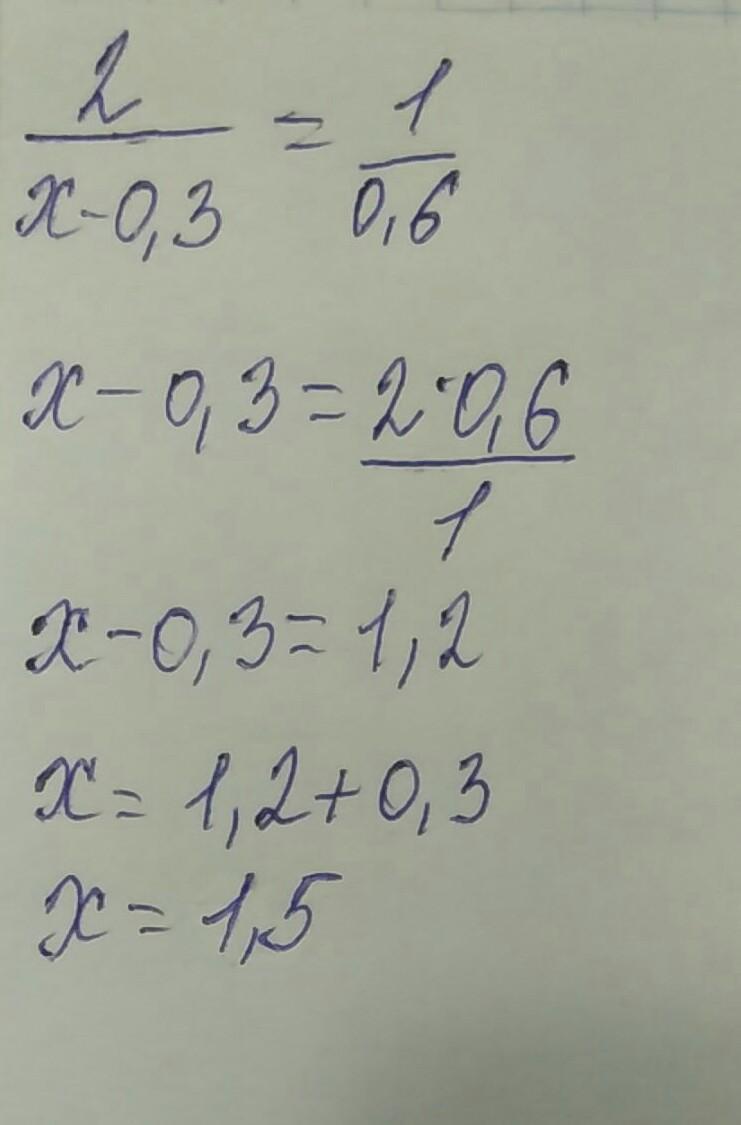 2/(x-0,3) = 1/0,6
x-0,3=2·0,6/1
x-0,3=1,2
x=1,2+0,3
x=1,5